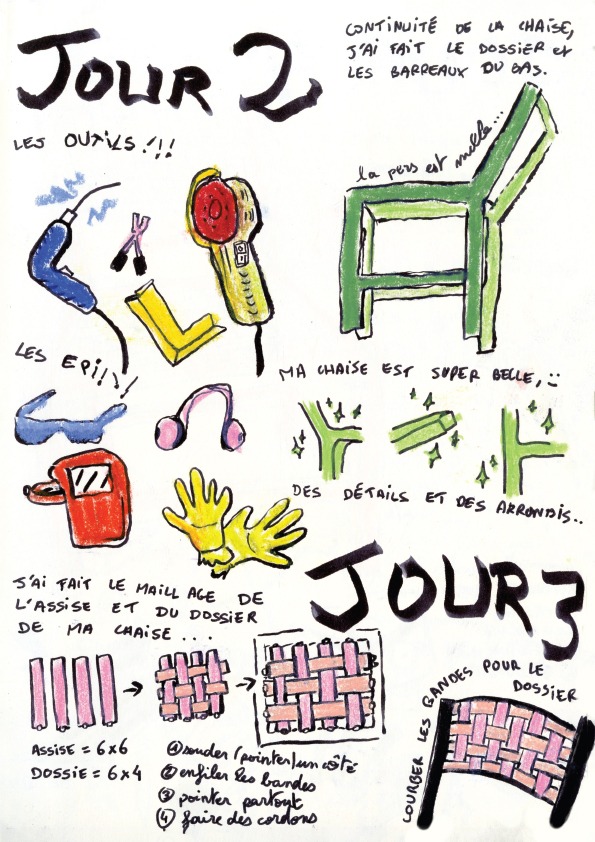 JOUR 2
CONTINUITÉ DE LA CHAISE,
J'AI FAIT LE DOSSIER et
LES BARREAUX DU BAS.
LES OUTILS !!!
la pers est molle...
LES EPI !!
MA CHAISE EST SUPER BELLE, :)
DES DÉTAILS ET DES ARRONDIS..
JOUR 3
J'AI FAIT LE MAILLAGE DE
L'ASSISE ET DU DOSSIER
DE MA CHAISE ...
ASSISE = 6x6
DOSSIE = 6x4
① souder (pointer) un côté
② enfiler les bandes
③ pointer partout
④ faire des cordons
COURBER LES BANDES POUR LE
DOSSIER